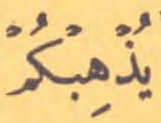 يُذْهِبْكُمْ